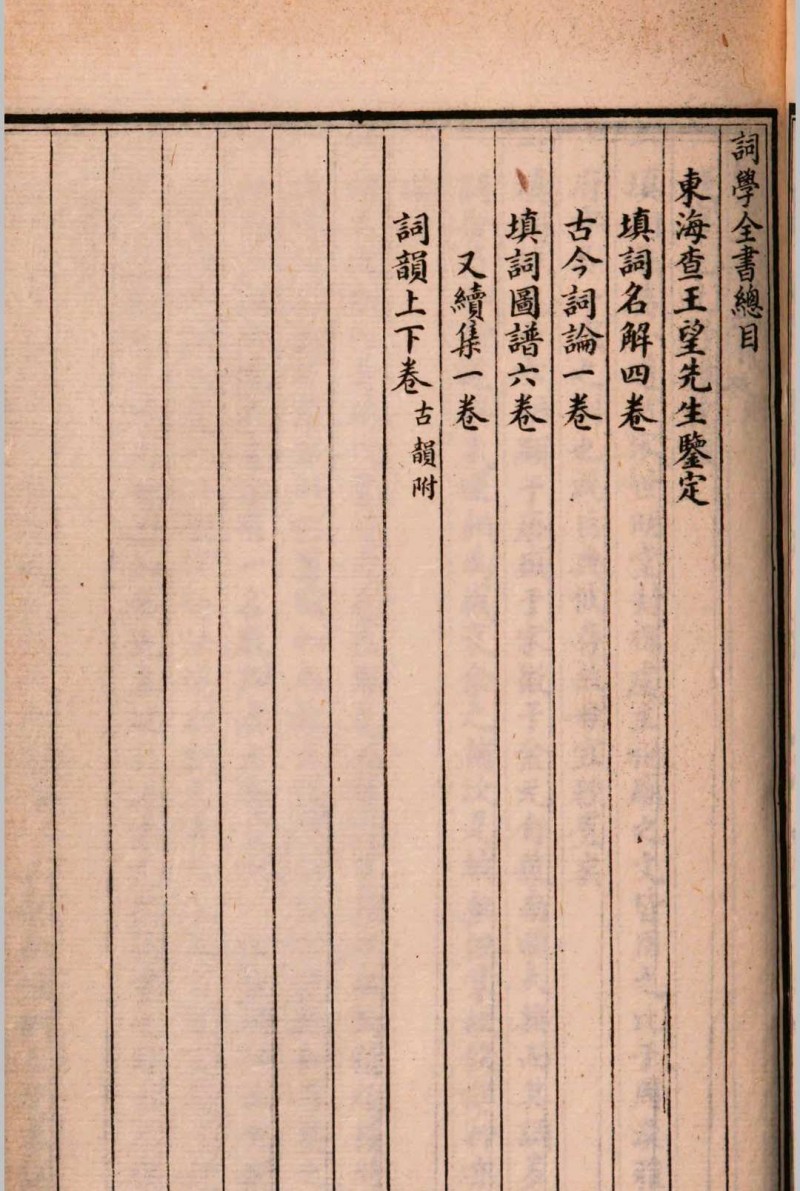 詞學全書總目
東海查王望先生鑒定
填詞名解四卷
古今詞論一卷
填詞圖譜六卷
又續集一卷
詞韻上下卷古韻附